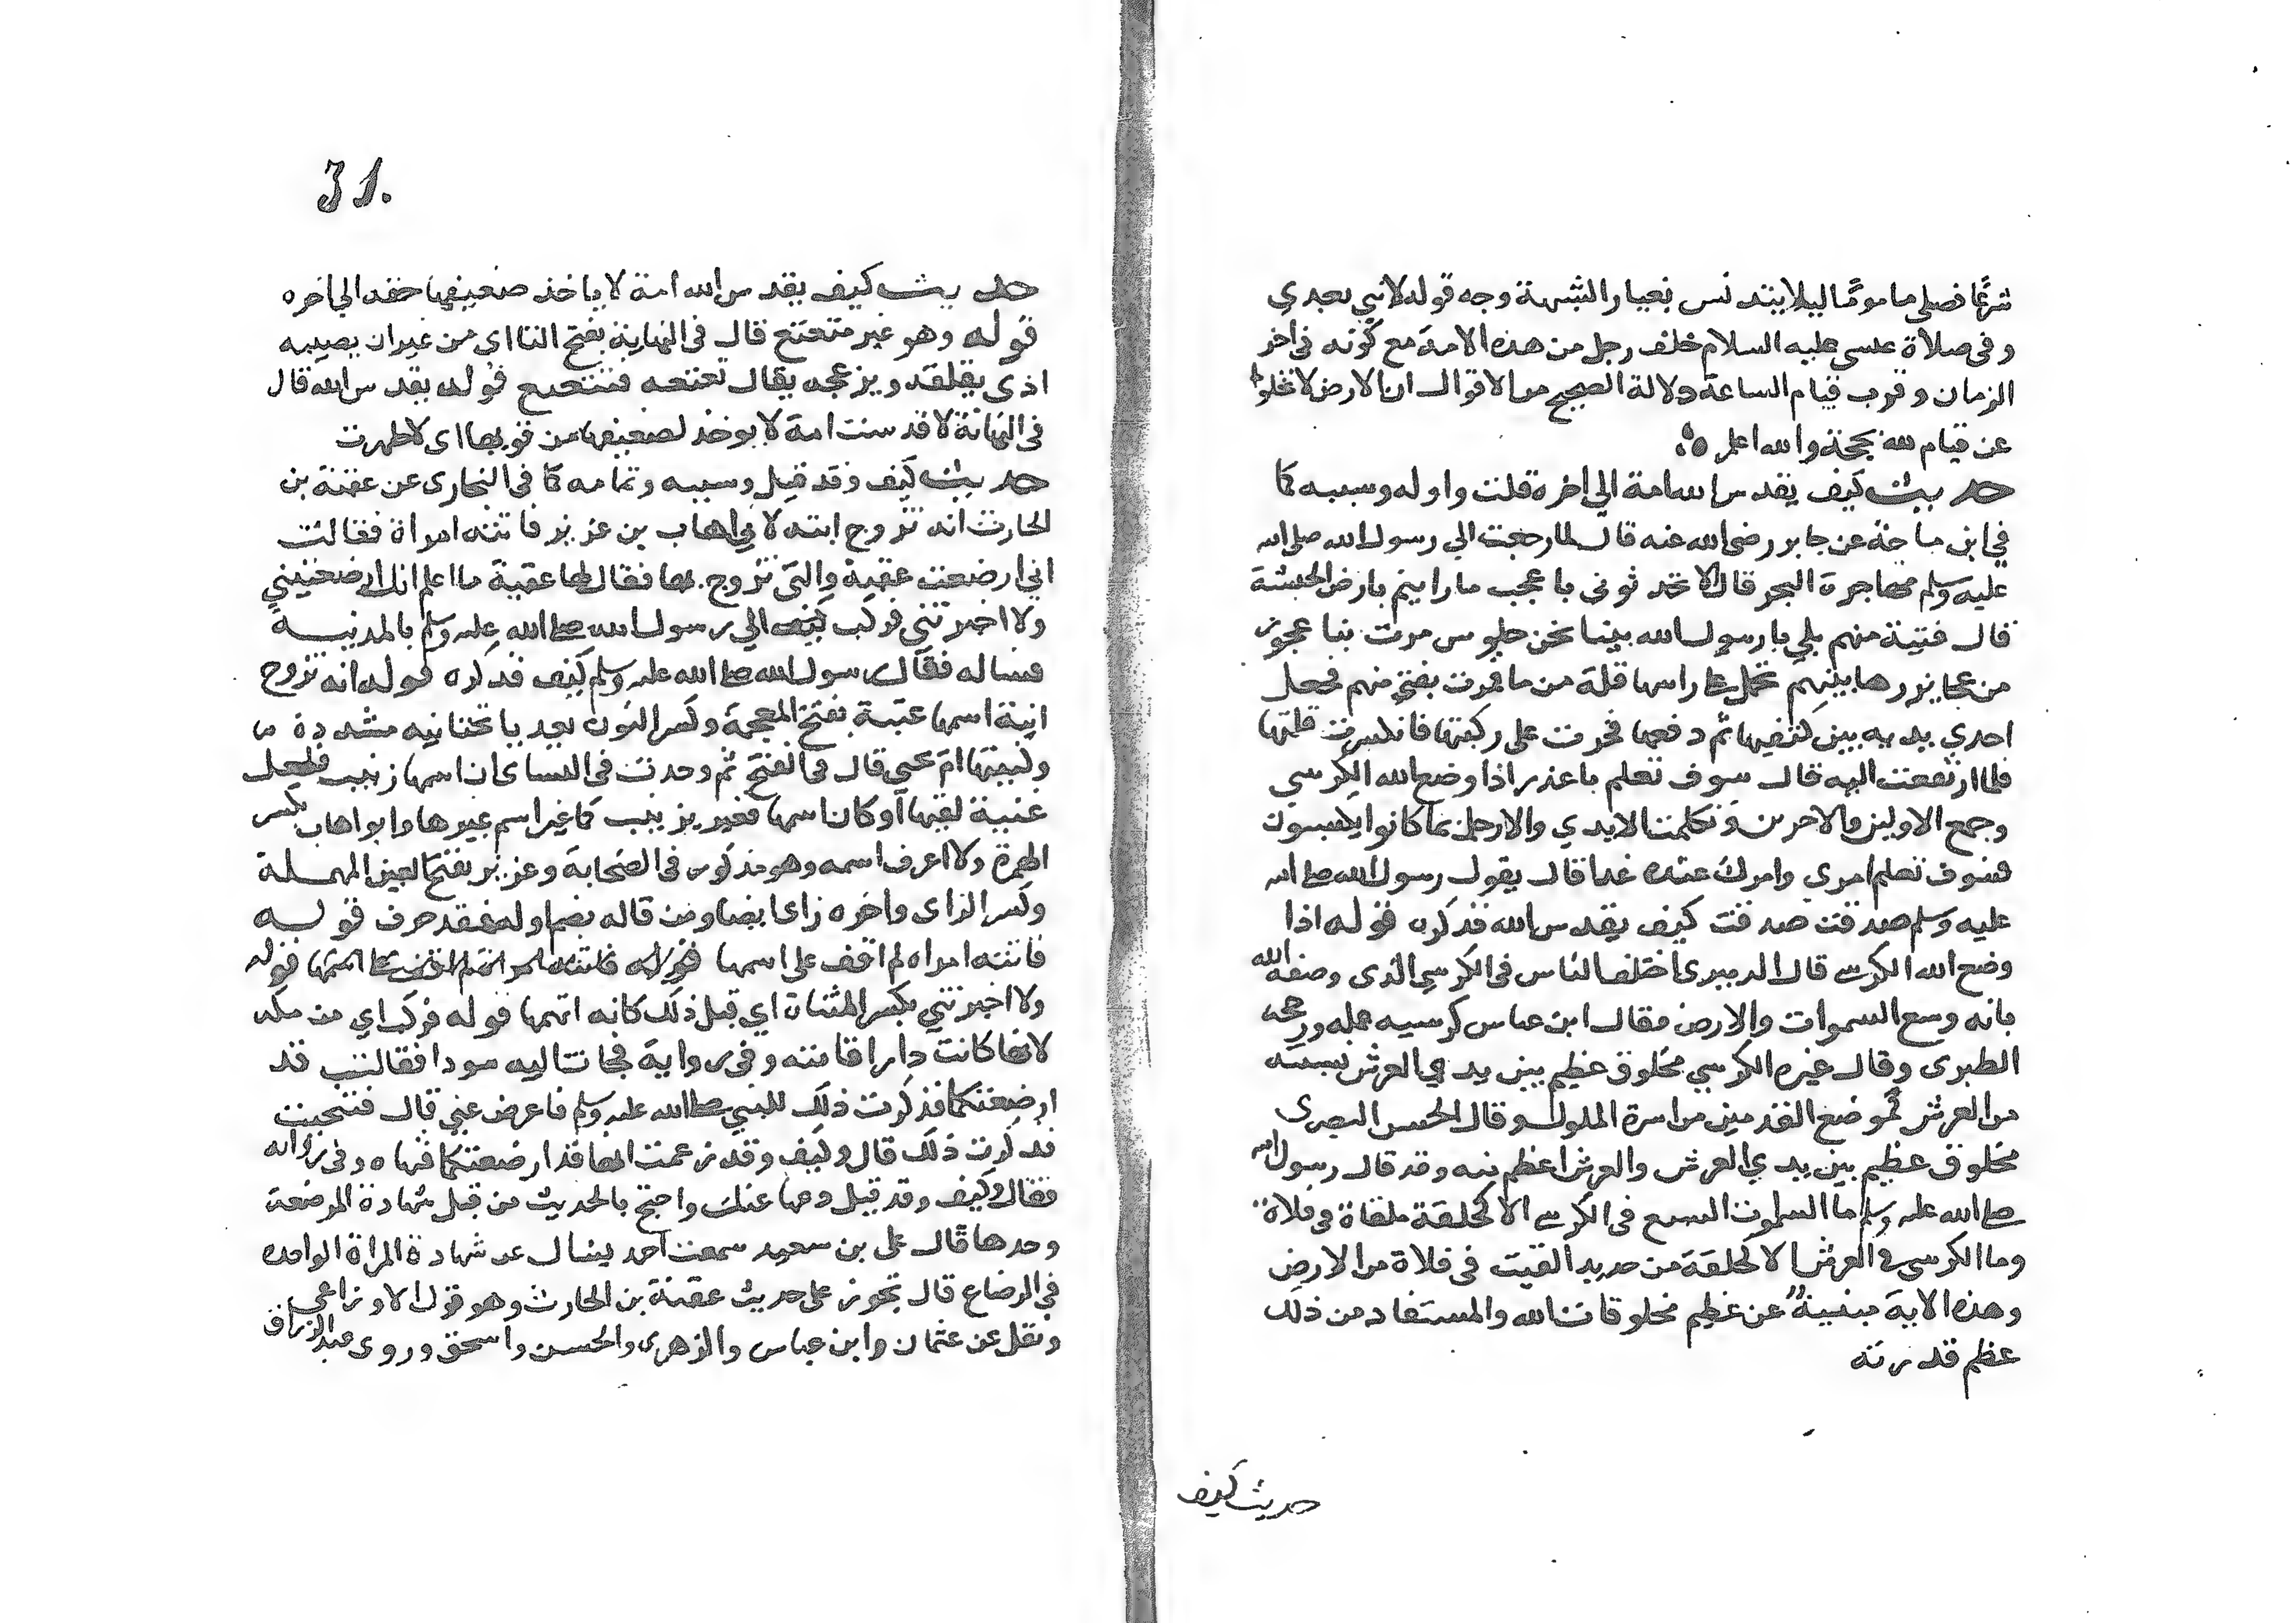 شرعًا فصلى مامومًا ليلا يتدنس بغبار الشبهة وجه قوله لا نبي بعدي
وفى صلاة عيسى عليه السلام خلف رجل من هذه الامة مع كونه فى اخر
الزمان وقرب قيام الساعة دلالة الصحيح من الاقوال ان الارض لا تخلوا
عن قيام لله بحجة والله اعلم
حديث كيف يقدس الله امة الي اخره قلت واوله وسببه كما
في ابن ماجة عن جابر رضى الله عنه قال لما رجعت الي رسول الله صلى الله
عليه وسلم مهاجرة البحر قال الا تحدثونى باعجب ما رايتم بارض الحبشة
قال فتية منهم بلي يا رسول الله بينا نحن جلوس مرت بنا عجوز
من عجايز رهابينهم تحمل على راسها قلة من ما فمرت بفتى منهم فجعل
احدي يديه بين كتفيها ثم دفعها فخرت على ركبتها فانكسرت قلتها
فلما ارتفعت اليه قال سوف تعلم يا غدر اذا وضع الله الكرسي
وجمع الاولين والاخرين وتكلمت الايدي والارجل بما كانوا يكسبون
فسوف تعلم امري وامرك عنده غدا قال يقول رسول الله صلى الله
عليه وسلم صدقت صدقت كيف يقدس الله فذكره قوله اذا
وضع الله الكرسي قال الدميرى اختلف الناس فى الكرسي الذى وصفه الله
بانه وسع السموات والارض فقال ابن عباس كرسيه علمه ورجحه
الطبرى وقال غيره الكرسي مخلوق عظيم بين يدي العرش نسبته
من العرش كموضع القدمين من اسرة الملوك وقال الحسن البصرى
مخلوق عظيم بين يدي العرش والعرش اعظم منه وقد قال رسول الله
صلى الله عليه وسلم ما السموات السبع فى الكرسي الا كحلقة ملقاة فى فلاة
وما الكرسي فى العرش الا كحلقة من حديد القيت فى فلاة من الارض
وهذه الاية مبنية عن عظيم مخلوقات الله والمستفاد من ذلك
عظم قدرته
حديث كيف
31.
حديث كيف يقدس الله امة لا ياخذ ضعيفها حقه الي اخره
قوله وهو غير متعتع قال فى النهاية بفتح التا اى من غير ان يصيبه
اذى يقلقه ويزعجه يقال تعتعه فتتعتع قوله يقدس الله قال
فى النهاية لا قدست امة لا يوخذ لضعيفها من قويها اى لا طهرت
حديث كيف وقد قيل وسببه وتمامه كما فى البخارى عن عقبة بن
الحارث انه تزوج ابنة لابي اهاب بن عزيز فاتته امراة فقالت
اني ارضعت عقبة والتى تزوج بها فقال لها عقبة ما اعلم انك ارضعتيني
ولا اخبرتني فركب الي رسول الله صلى الله عليه وسلم بالمدينة
فساله فقال رسول الله صلى الله عليه وسلم كيف فذكره قوله انه تزوج
ابنة اسمها غنية بفتح المعجمة وكسر النون بعد يا تحتانيه مشددة
وكنيتها ام يحيى قال فى الفتح ثم وجدت فى النساى ان اسمها زينب فلعل
غنية لقبها او كان اسمها فغير بزينب كما غير اسم غيرها وابو اهاب بكسر
الهمزة ولا اعرف اسمه وهو مذكور فى الصحابة وعزيز بفتح العين المهملة
وكسر الزاى واخره زاى ايضا ومن قاله بضم اوله فقد حرف قوله
فاتته امراه لم اقف على اسمها قوله فاتته امراة لم اقف على اسمها قوله
ولا اخبرتني بكسر المثناة اي قبل ذلك كانه اتهمها قوله فركب اي من مكة
لانها كانت دار اقامته وفى رواية فجات اليه سودا فقالت قد
ارضعتكما فذكرت ذلك للنبي صلى الله عليه وسلم فاعرض عني قال فتنحيت
فذكرت ذلك قال وكيف وقد زعمت انها قد ارضعتكما فنهاه وفى رواية
فقال وكيف وقد قيل دعها عنك واحتج بالحديث من قبل شهادة المرضعة
وحدها قال على بن سعيد سمعت احمد يسال عن شهادة المراة الواحده
في الرضاع قال تجوز على حديث عقبة بن الحارث وهو قول الاوزاعي
ونقل عن عثمان وابن عباس والزهرى والحسن واسحق وروى عبد الرزاق